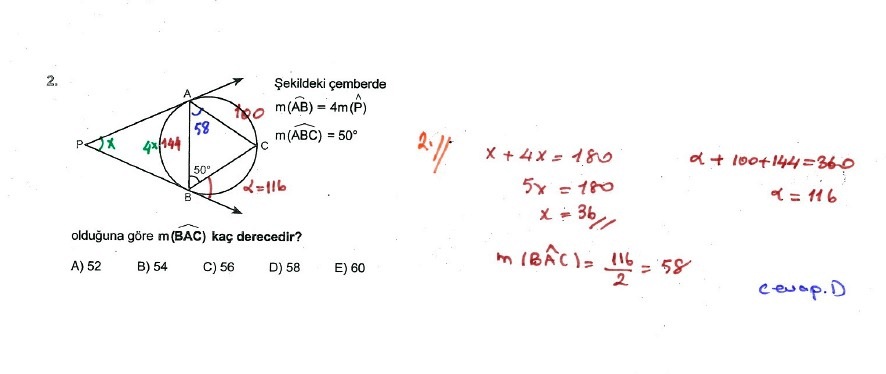 2.
Şekildeki çemberde
m(AB) = 4m(P)
m(ABC) = 50°
A
P
B
C
x
4x
144
100
58
50°
α=116
olduğuna göre m(BAC) kaç derecedir?
A) 52 B) 54 C) 56 D) 58 E) 60
2.//
x + 4x = 180
5x = 180
x = 36//
m(BAC) = 116/2 = 58
α + 100 + 144 = 360
α = 116
cevap.D